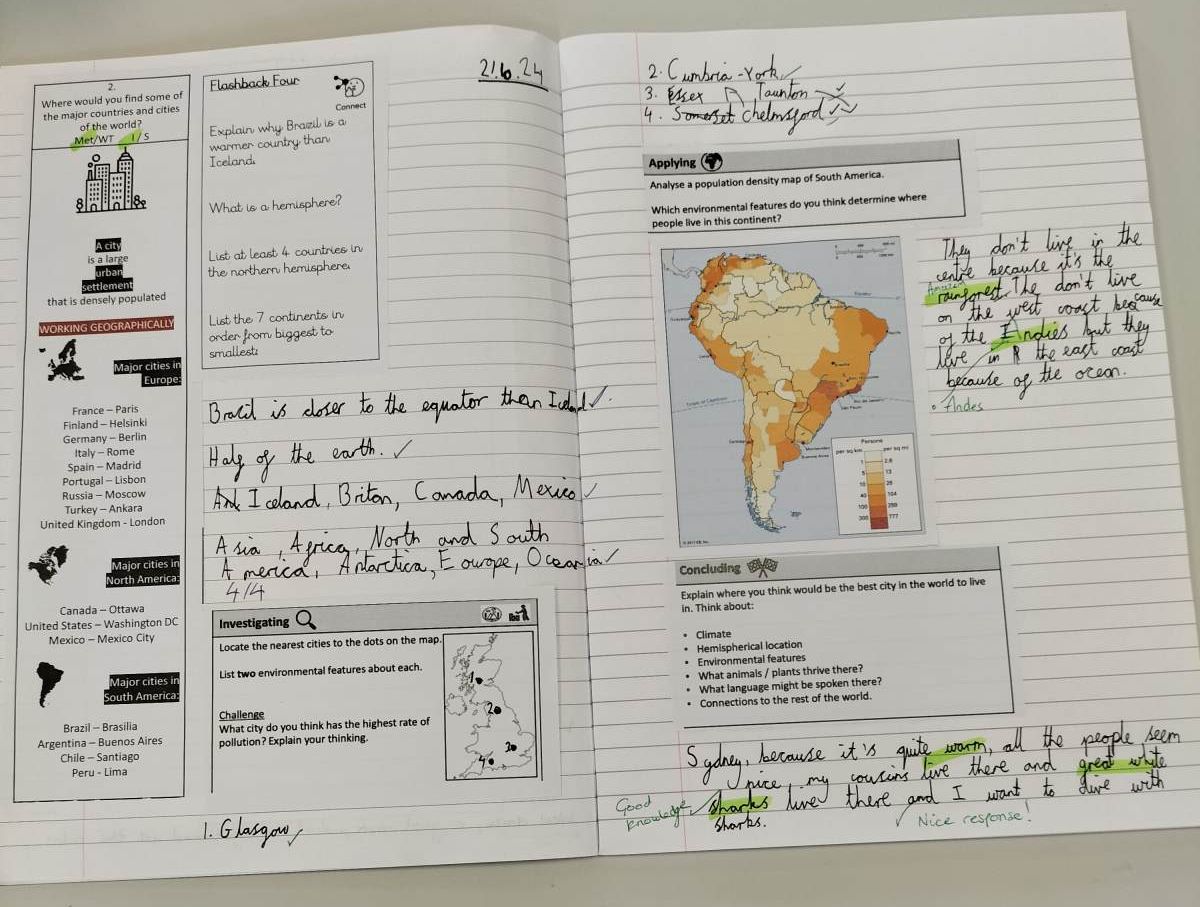 2.
Where would you find some of
the major countries and cities
of the world?
Met/WT I/S
A city
is a large
urban
settlement
that is densely populated
WORKING GEOGRAPHICALLY
Major cities in
Europe:
France – Paris
Finland – Helsinki
Germany – Berlin
Italy – Rome
Spain – Madrid
Portugal – Lisbon
Russia – Moscow
Turkey – Ankara
United Kingdom - London
Major cities in
North America:
Canada – Ottawa
United States – Washington DC
Mexico – Mexico City
Major cities in
South America:
Brazil – Brasilia
Argentina – Buenos Aires
Chile – Santiago
Peru - Lima
Flashback Four
Connect
Explain why Brazil is a
warmer country than
Iceland.
What is a hemisphere?
List at least 4 countries in
the northern hemisphere.
List the 7 continents in
order from biggest to
smallest.
21.6.24
Brazil is closer to the equator then Iceland
Half of the earth.
Iceland, Briton, Canada, Mexico
Asia, Africa, North and South
America, Antarctica, Eourope, Oceania
4/4
Investigating
Locate the nearest cities to the dots on the map.
List two environmental features about each.
Challenge
What city do you think has the highest rate of
pollution? Explain your thinking.
1
2
3
4
1. Glasgow
2. Cumbria - York
3. Essex Taunton
4. Somerset Chelmsford
Applying
Analyse a population density map of South America.
Which environmental features do you think determine where
people live in this continent?
Persons
per sq km per sq mi
1 2.6
5 13
10 26
40 104
100 259
300 777
They don't live in the
centre because it's the
Amazon
rainforest. The don't live
on the west coast because
of the Andies but they
live in the east coast
because of the ocean.
Andes
Concluding
Explain where you think would be the best city in the world to live
in. Think about:
• Climate
• Hemispherical location
• Environmental features
• What animals / plants thrive there?
• What language might be spoken there?
• Connections to the rest of the world.
Sydney, because it's quite warm, all the people seem
nice, my cousins live there and great white
sharks live there and I want to dive with
sharks.
Good
knowledge
Nice response!